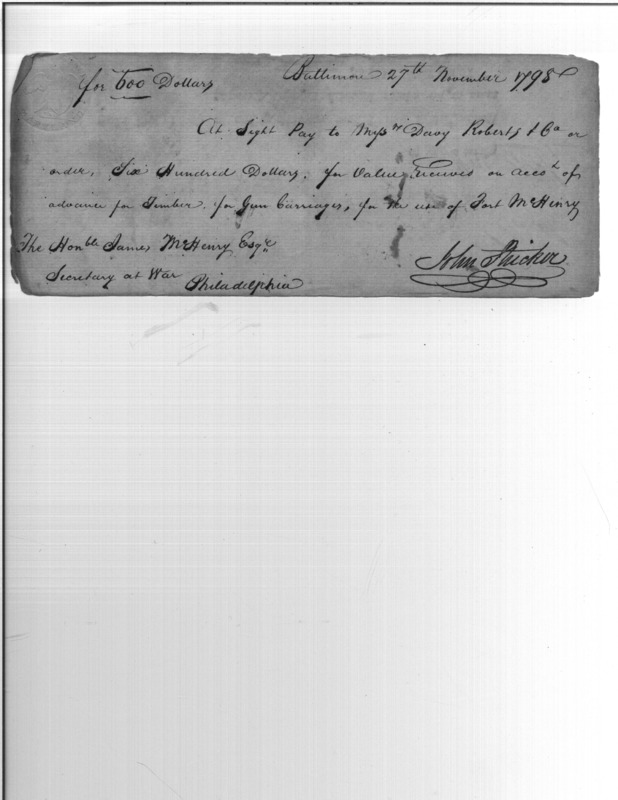 for 600 Dollars
Baltimore 27th November 1798
At Sight Pay to Messrs Davy Roberts & Co or
order, Six Hundred Dollars, for Value Received on accot of
advance for Timber, for Gun Carriages, for the use of Fort McHenry
The Honble James McHenry Esqr
Secretary at War
Philadelphia
John Stricker